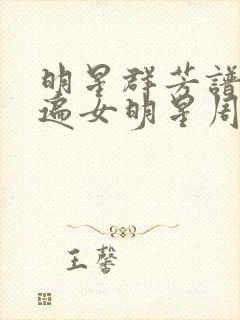 明星群芳譜
遍女明星周
王馨